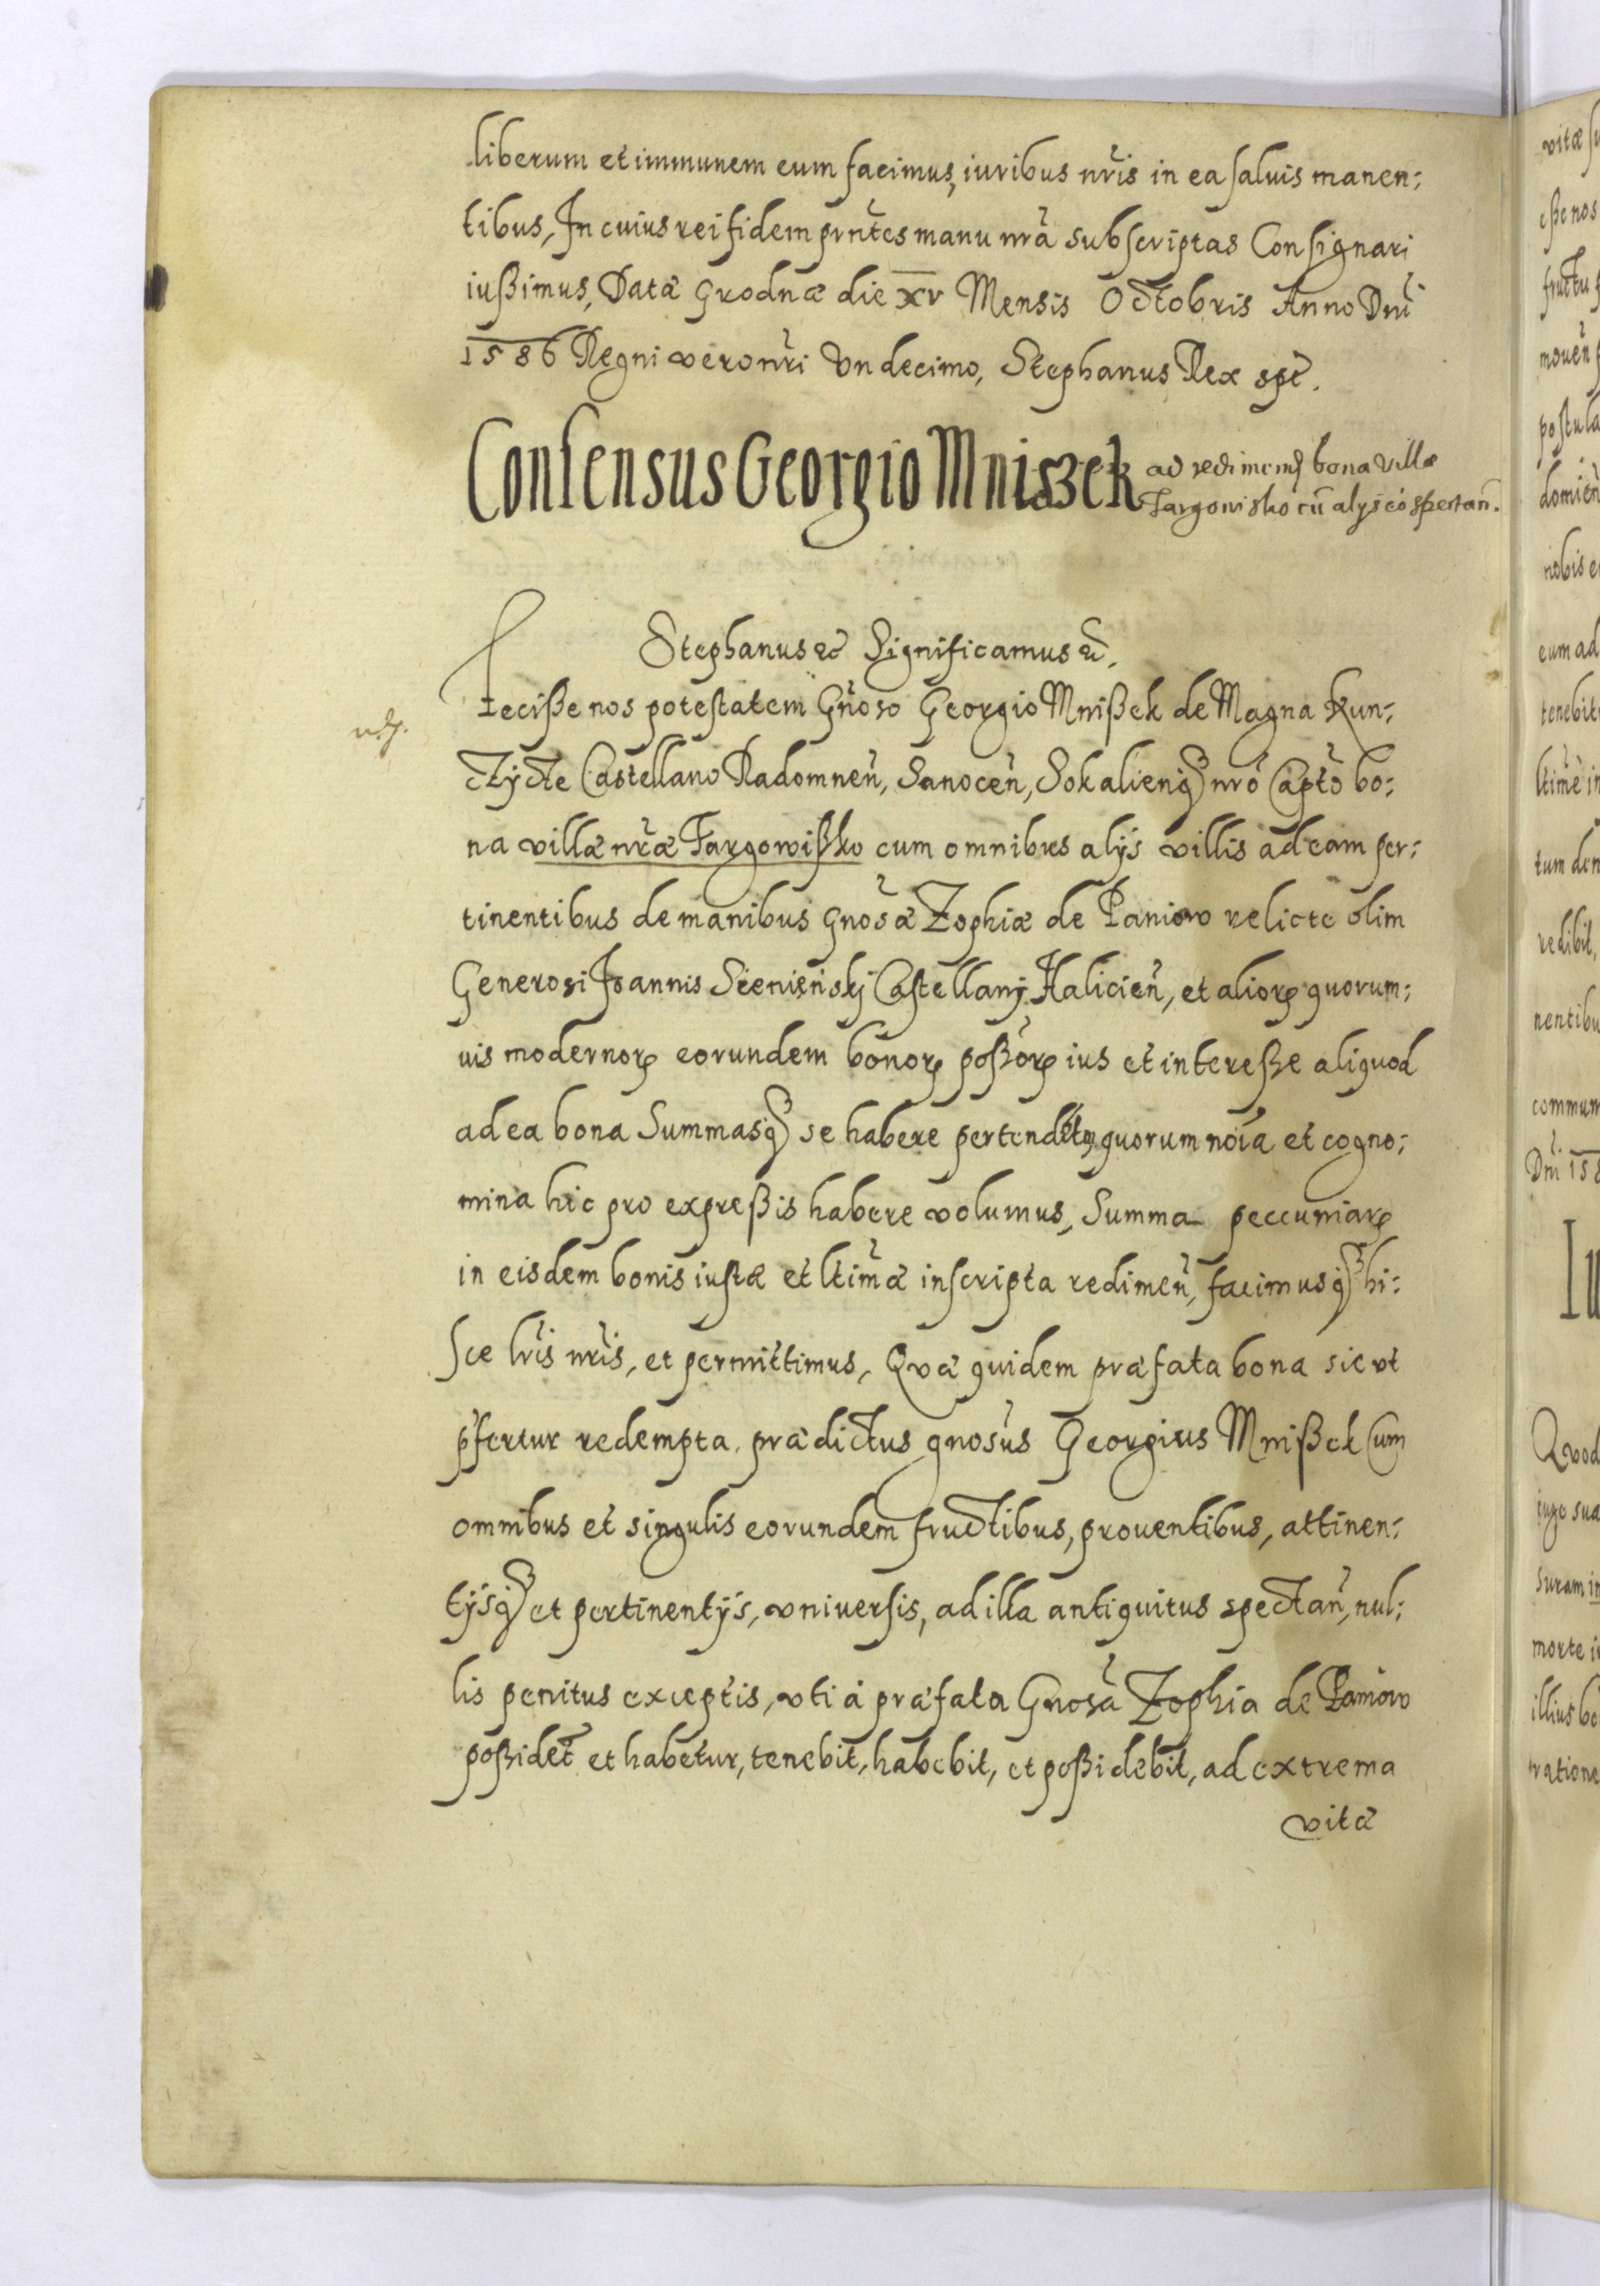 liberum et immunem eum facimus, iuribus nr̃is in ea saluis manen:
tibus, In cuius rei fidem prñtes manu nrã subscriptas Consignari
iußimus, Datæ Grodnæ die XV Mensis Octobris Anno Dni
1586 Regni vero nr̃i Vndecimo, Stephanus Rex spt.
Consensus Georgio Mniszek
ad redimend bona villæ
Targowisko cũ alys eo spectan.
Stephanus etc Significamus etc.
Feciße nos potestatem Gnoso Georgio Mnißek de Magna Kun:
czÿcze Castellano Radomneñ, Sanoceñ, Sokalienq nrõ Captõ bo:
na villæ nr̃æ Targowißko cum omnibus alÿs villis ad eam per:
tinentibus de manibus gnosæ Zophiæ de Paniow relicte olim
Generosi Joannis Sienieński Castellani Halicieñ, et alioꝝ quorum:
uis modernoꝝ eorundem bonoꝝ poßõꝝ ius et intereße aliquod
ad ea bona Summasq se habere quorum noĩa et cogno:
mina hic pro expreßis habere volumus, Summa peccuniaꝝ
in eisdem bonis iustæ et ltimæ inscripta redimeñ, facimusq hi:
sce lr̃is nr̃is, et permittimus, Quæ quidem præfata bona sic vt
p̃fertur redempta prædictus gnosus Georgius Mnißek Cum
omnibus et singulis eorundem fructibus, prouentibus, attinen:
tÿsq et pertinentÿs, vniuersis, ad illa antiquitus spectañ, nul:
lis penitus exceptis, vti à præfata Gnosa Zophia de Paniow
poßidet et habetur, tenebit, habebit, et poßidebit, ad extrema
vitæ